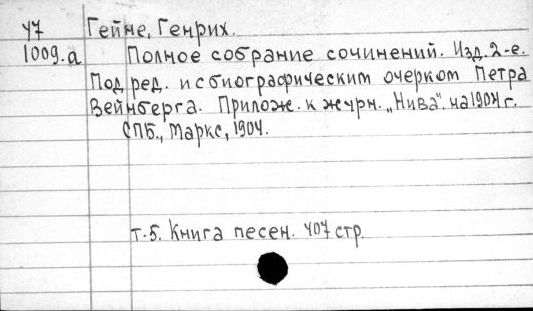 У7 Гейне, Генрих.
1009.а Полное собрание сочинений. Изд. 2-е.
Под ред. и с биографическим очерком Петра
Вейнберга. Прилож. к журн. „Нива“. на 1904 г.
СПБ., Маркс, 1904.
т.5. Книга песен. 407 стр.